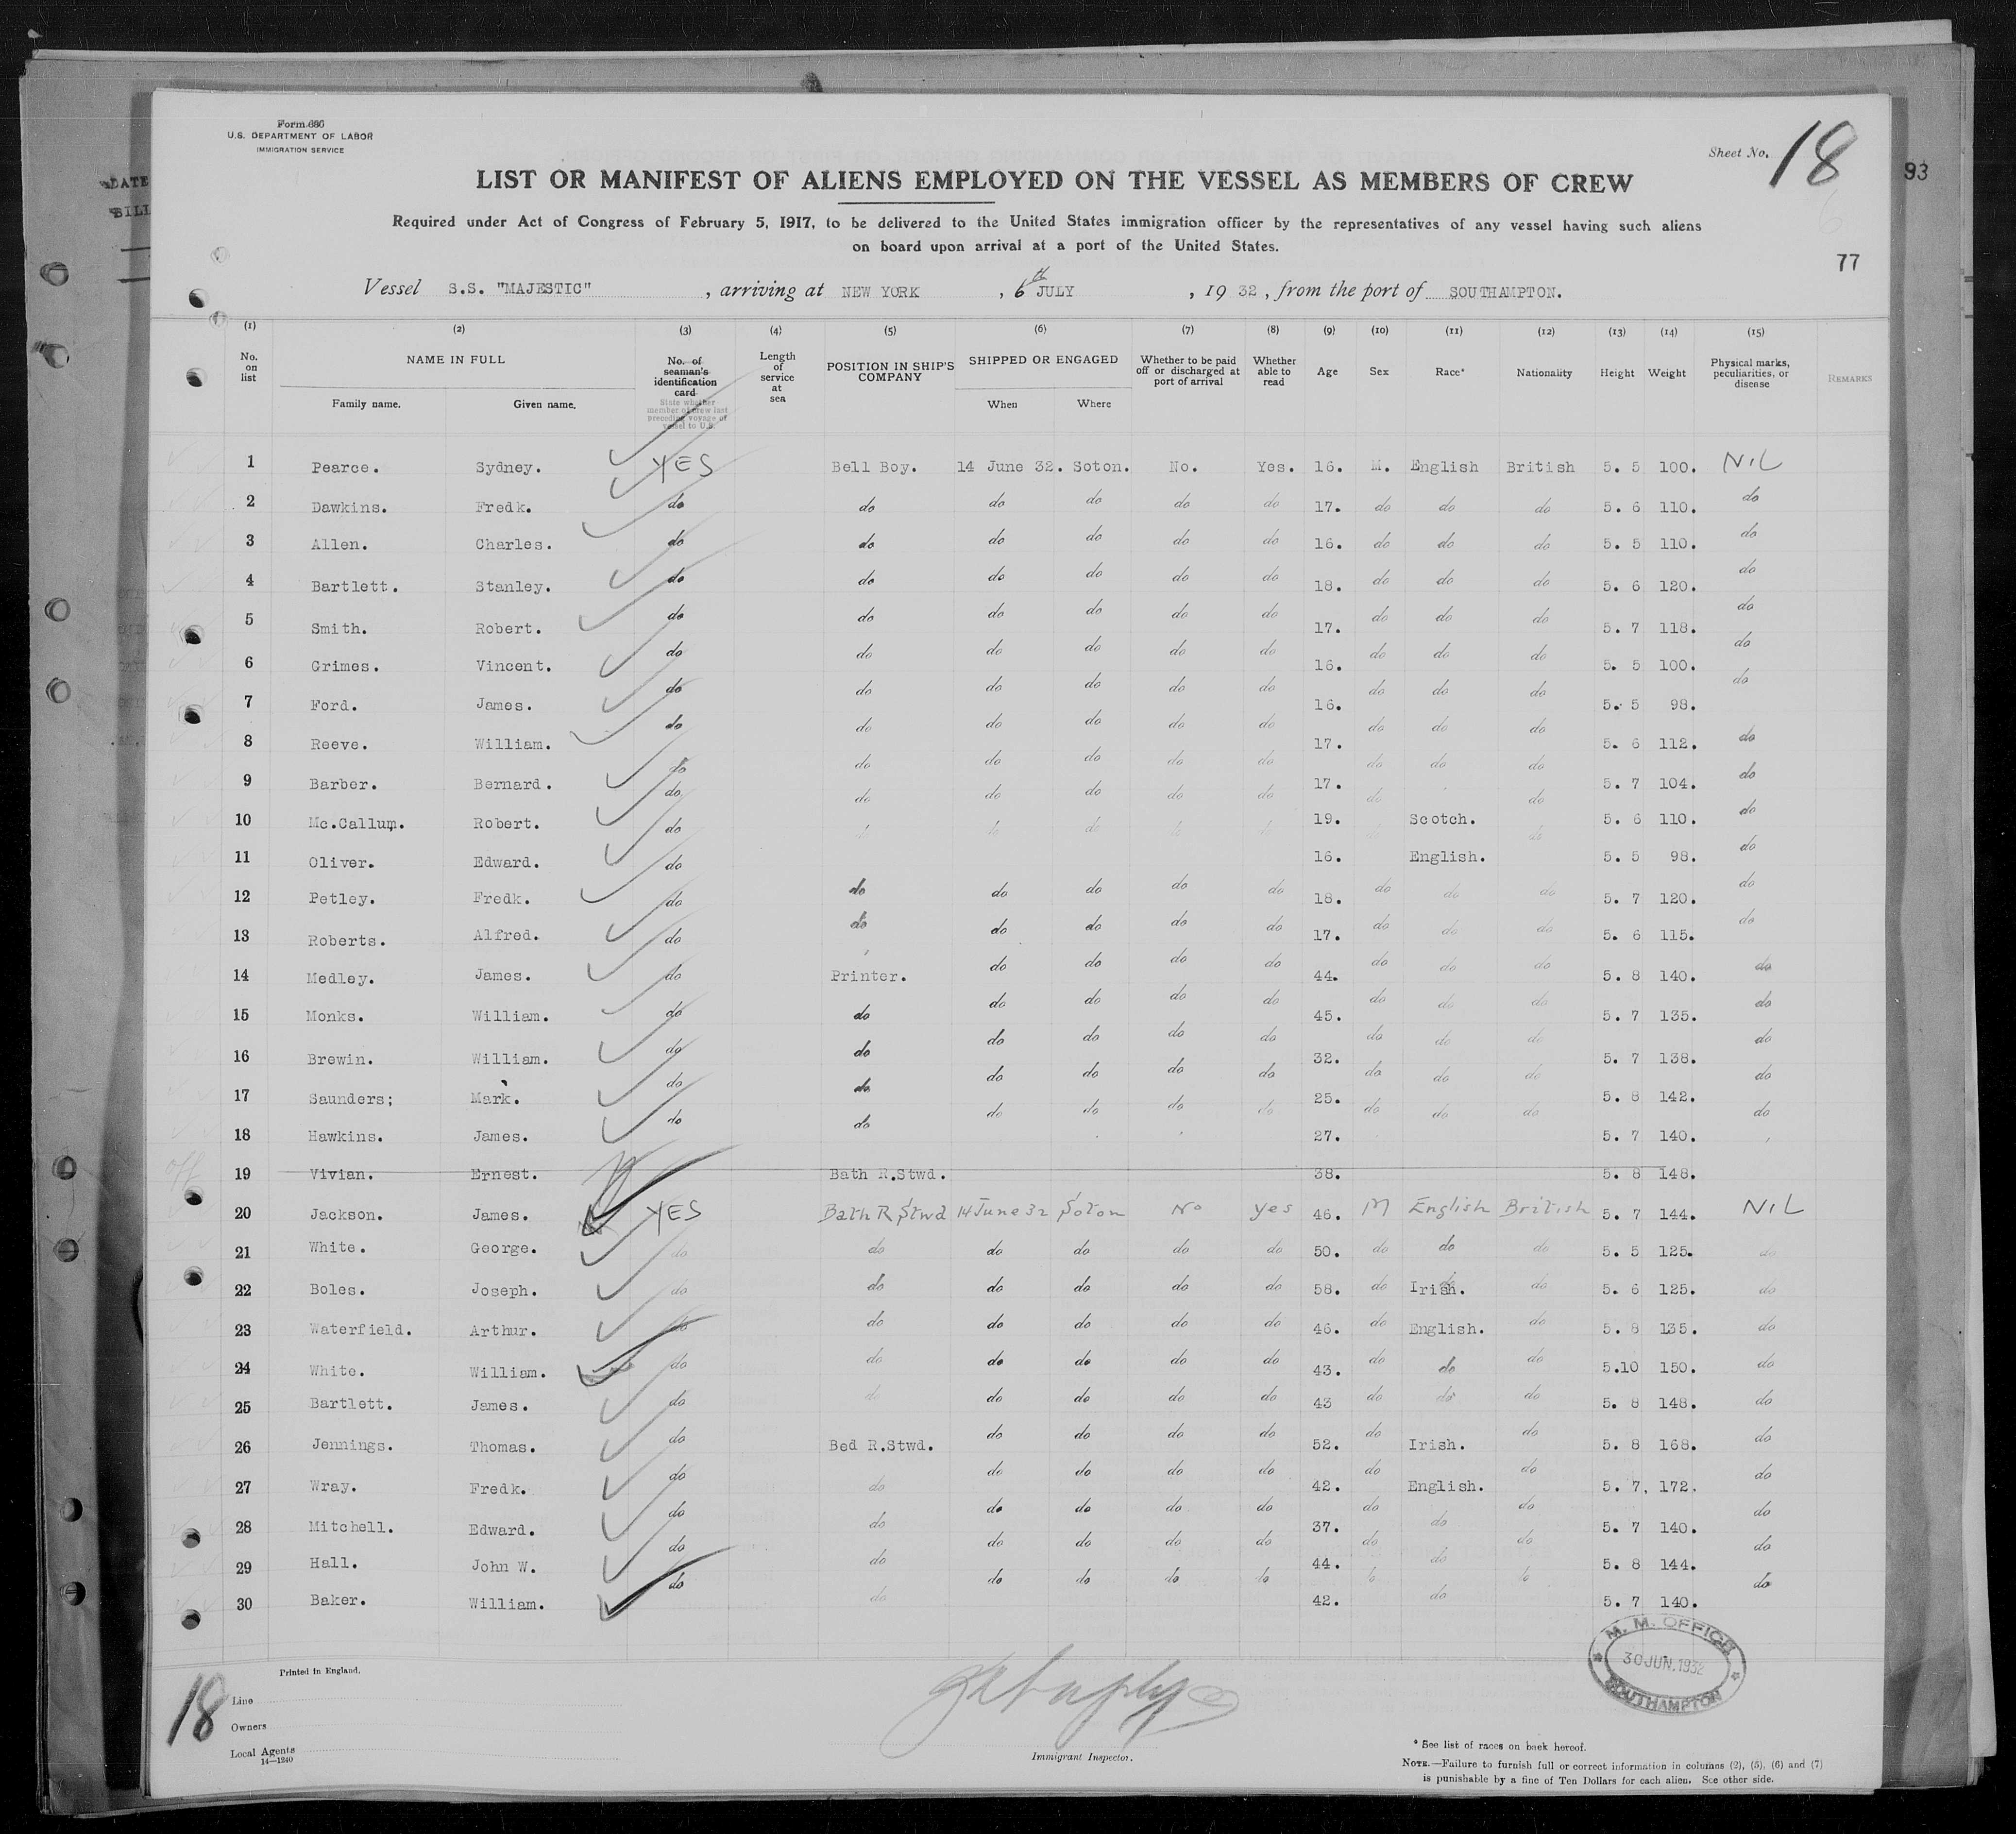 Form 686
U.S. DEPARTMENT OF LABOR
IMMIGRATION SERVICE
Sheet No. 18
93
DATE
BILL
LIST OR MANIFEST OF ALIENS EMPLOYED ON THE VESSEL AS MEMBERS OF CREW
Required under Act of Congress of February 5, 1917, to be delivered to the United States immigration officer by the representatives of any vessel having such aliens
on board upon arrival at a port of the United States.
77
Vessel S.S. "MAJESTIC", arriving at NEW YORK, 6th JULY, 1932, from the port of SOUTHAMPTON.
(1) (2) (3) (4) (5) (6) (7) (8) (9) (10) (11) (12) (13) (14) (15)
No. on list NAME IN FULL Family name. Given name. No. of seaman's identification card State whether member of crew last preceding voyage of vessel to U.S. Length of service at sea POSITION IN SHIP'S COMPANY SHIPPED OR ENGAGED When Where Whether to be paid off or discharged at port of arrival Whether able to read Age Sex Race* Nationality Height Weight Physical marks, peculiarities, or disease REMARKS
1 Pearce. Sydney. YES Bell Boy. 14 June 32. Soton. No. Yes. 16. M. English British 5. 5 100. NIL
2 Dawkins. Fredk. do do do do do do 17. do do do 5. 6 110. do
3 Allen. Charles. do do do do do do 16. do do do 5. 5 110. do
4 Bartlett. Stanley. do do do do do do 18. do do do 5. 6 120. do
5 Smith. Robert. do do do do do do 17. do do do 5. 7 118. do
6 Grimes. Vincent. do do do do do do 16. do do do 5. 5 100. do
7 Ford. James. do do do do do do 16. do do do 5. 5 98. do
8 Reeve. William. do do do do do do 17. do do do 5. 6 112. do
9 Barber. Bernard. do do do do do do 17. do do do 5. 7 104. do
10 Mc.Callum. Robert. do do do do do do 19. do Scotch. do 5. 6 110. do
11 Oliver. Edward. do do do do do do 16. English. do 5. 5 98. do
12 Petley. Fredk. do do do do do do 18. do do do 5. 7 120. do
13 Roberts. Alfred. do do do do do do 17. do do do 5. 6 115. do
14 Medley. James. do Printer. do do do do 44. do do do 5. 8 140. do
15 Monks. William. do do do do do do 45. do do do 5. 7 135. do
16 Brewin. William. do do do do do do 32. do do do 5. 7 138. do
17 Saunders; Mark. do do do do do do 25. do do do 5. 8 142. do
18 Hawkins. James. do do do do do do 27. do do do 5. 7 140. do
off 19 Vivian. Ernest. Bath R.Stwd. 38. 5. 8 148.
20 Jackson. James. YES Bath R Stwd 14 June 32 Soton No yes 46. M English British 5. 7 144. NIL
21 White. George. do do do do do do 50. do do do 5. 5 125. do
22 Boles. Joseph. do do do do do do 58. do Irish. do 5. 6 125. do
23 Waterfield. Arthur. do do do do do do 46. do English. do 5. 8 135. do
24 White. William. do do do do do do 43. do do do 5.10 150. do
25 Bartlett. James. do do do do do do 43 do do do 5. 8 148. do
26 Jennings. Thomas. do Bed R.Stwd. do do do do 52. do Irish. do 5. 8 168. do
27 Wray. Fredk. do do do do do do 42. do English. do 5. 7, 172. do
28 Mitchell. Edward. do do do do do do 37. do do do 5. 7 140. do
29 Hall. John W. do do do do do do 44. do do do 5. 8 144. do
30 Baker. William. do do do do do do 42. do do do 5. 7 140. do
M. M. OFFICE
30 JUN. 1932
SOUTHAMPTON
Printed in England.
18
Line
Owners
Local Agents
14—1240
Immigrant Inspector.
* See list of races on back hereof.
NOTE.—Failure to furnish full or correct information in columns (2), (5), (6) and (7)
is punishable by a fine of Ten Dollars for each alien. See other side.